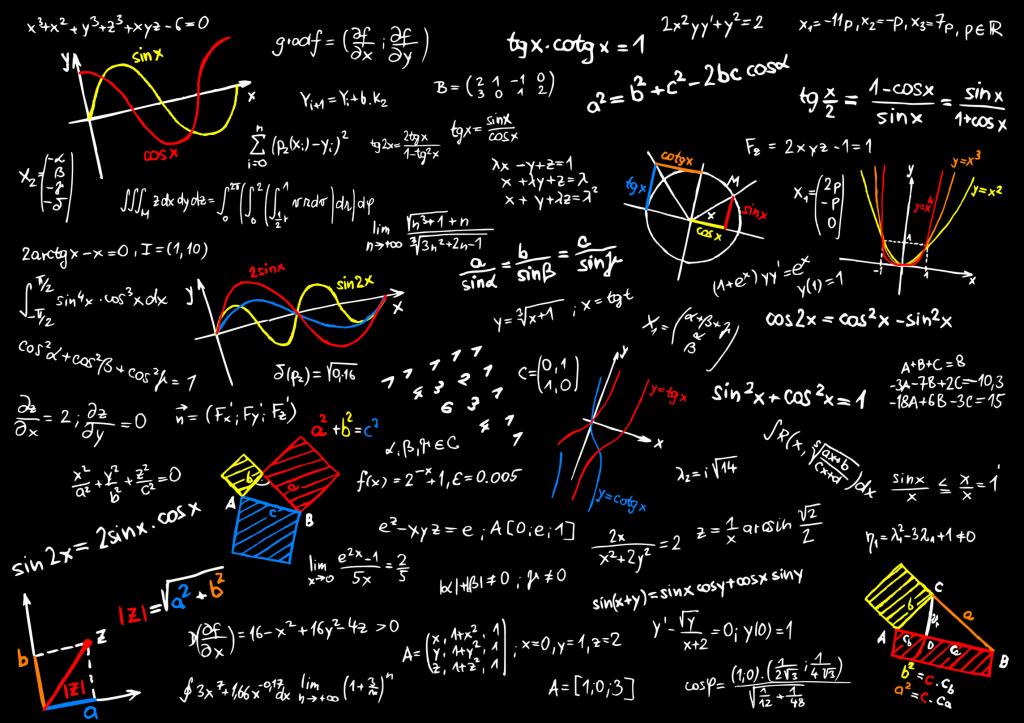 x³+x² + y³+z³ + xyz - 6 = 0
gradf = (∂f/∂x ; ∂f/∂y)
tgx · cotgx = 1
2x²yy' + y² = 2
x₁ = -11p, x₂ = -p, x₃ = 7p, p∈R
y
sinx
x
cosx
Yᵢ₊₁ = Yᵢ + b·k₂
B = (2 1 -1 0
3 0 1 2)
a² = b² + c² - 2bc cosα
tg x/2 = (1-cosx)/sinx = sinx/(1+cosx)
∑ⁿᵢ₌₀ (p₂(xᵢ) - yᵢ)²
tg2x = 2tgx/(1-tg²x)
tgx = sinx/cosx
F_z = 2xyz - 1 = 1
λx - y + z = 1
x + λy + z = λ
x + y + λz = λ²
cotgx
tgx
M
sinx
x
cosx
X₁ = (2p
-p
0)
y
y=x³
y=x²
y=x⁴
1
-1
1
x
X₂ = (-α
β
-γ
-δ)
∭_M z dx dy dz =
lim n→+∞ (√(n³+1) + n)/∛(3n²+2n-1)
2arctgx - x = 0, I = (1,10)
a/sinα = b/sinβ = c/sinγ
(1+eˣ) yy' = eˣ
y(1) = 1
∫_{-π/2}^{π/2} sin⁴x · cos³x dx
y
2sinx
sin2x
x
y = ∛(x+1) ; x = tgt
X₁ = (α+β+γ
α
β)
cos2x = cos²x - sin²x
cos²α + cos²β + cos²γ = 1
δ(p₂) = √0,16
C = (0, 1
1, 0)
y
y=tgx
x
y=cotgx
A+B+C = 8
-3A-7B+2C = -10,3
-18A+6B-3C = 15
sin²x + cos²x = 1
∂z/∂x = 2 ; ∂z/∂y = 0
n⃗ = (Fx'; Fy'; Fz')
a² + b² = c²
α, β, γ ∈ C
∫R(x, (ax+b)/(cx+d))dx
x²/a² + y²/b² + z²/c² = 0
b
a
A
c
B
f(x) = 2⁻ˣ + 1, ε = 0.005
λ₂ = i√14
sinx/x ≤ x/x = 1
sin2x = 2sinx · cosx
eᶻ - xyz = e ; A[0; e; 1]
2x/(x²+2y²) = 2
z = 1/x arcsin √2/2
η₁ = λ₁² - 3λ₁ + 1 ≠ 0
lim x→0 (e²ˣ - 1)/5x = 2/5
|α| + |β| ≠ 0 ; γ ≠ 0
sin(x+y) = sinx cosy + cosx siny
|z| = √(a² + b²)
b
z
|z|
a
(∂f/∂x) = 16 - x² + 16y² - 4z > 0
A = (x, 1+x², 1
y, 1+y², 1
z, 1+z², 1) ; x=0, y=1, z=2
y' - √y/(x+2) = 0; y(0) = 1
b
C
a
A
D
B
b² = c·c_b
a² = c·c_a
lim n→+∞ (1 + 3/n)ⁿ
A = [1; 0; 3]
cosφ = (1;0)·(1/2√3; 1/4√3)/√(1/12 + 1/48)